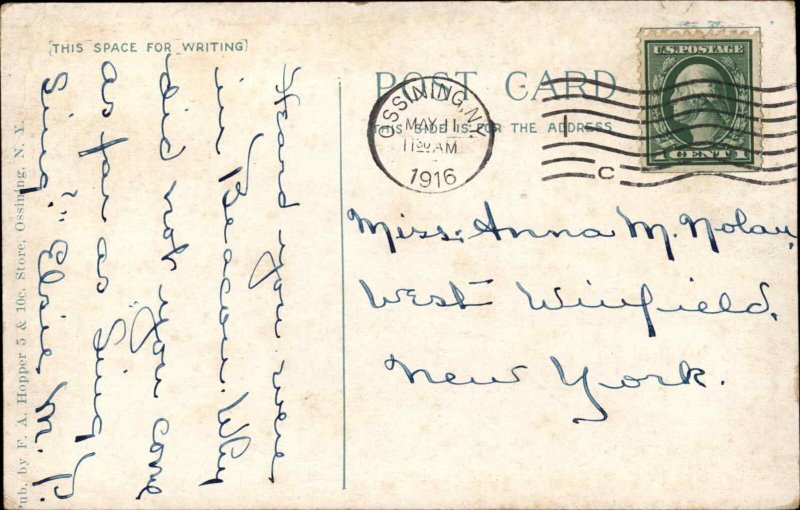 [THIS SPACE FOR WRITING]
Heard you were
in Beacon. Why
did not you come
as far as "Sing
Sing" Elsie M. P.
Pub. by F. A. Hopper 5 & 10c. Store, Ossining, N. Y.
POST CARD
THIS SIDE IS FOR THE ADDRESS
OSSINING, N.Y.
MAY 11
11 30 AM
1916
C
U.S. POSTAGE
1 CENT 1
Miss. Anna M. Nolan,
West Winfield,
New York.